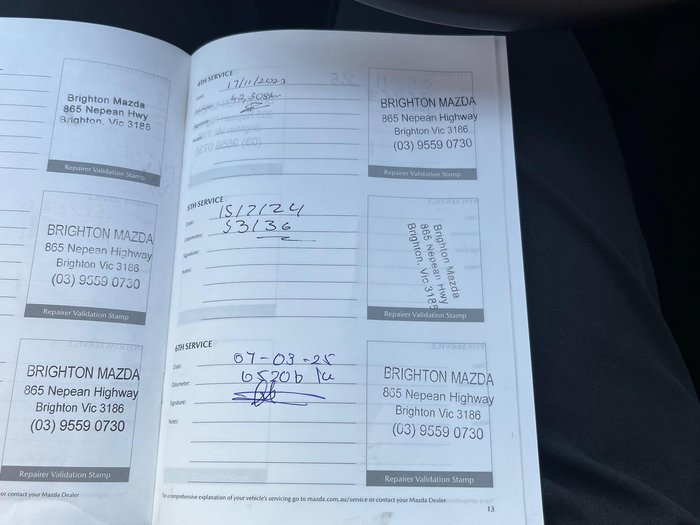 Brighton Mazda
865 Nepean Hwy
Brighton, Vic 3186
Repairer Validation Stamp
BRIGHTON MAZDA
865 Nepean Highway
Brighton Vic 3186
(03) 9559 0730
Repairer Validation Stamp
BRIGHTON MAZDA
865 Nepean Highway
Brighton Vic 3186
(03) 9559 0730
Repairer Validation Stamp
or contact your Mazda Dealer
4TH SERVICE
Date: 17/11/2023
Odometer: 42,308km
Signature:
Notes:
BRIGHTON MAZDA
865 Nepean Highway
Brighton Vic 3186
(03) 9559 0730
Repairer Validation Stamp
5TH SERVICE
Date: 15/7/24
Odometer: 53136
Signature:
Notes:
Brighton Mazda
865 Nepean Hwy
Brighton, Vic 3186
Repairer Validation Stamp
6TH SERVICE
Date: 07-03-25
Odometer: 65206
Signature:
Notes:
BRIGHTON MAZDA
865 Nepean Highway
Brighton Vic 3186
(03) 9559 0730
Repairer Validation Stamp
For a comprehensive explanation of your vehicle's servicing go to mazda.com.au/service or contact your Mazda Dealer
13